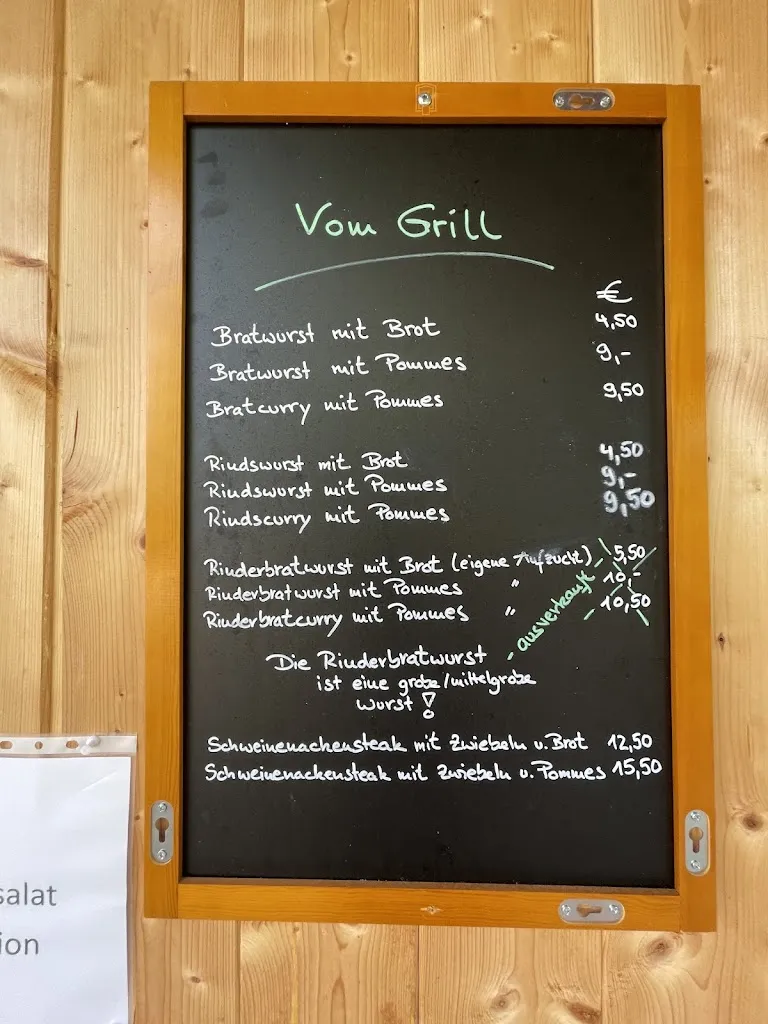 Vom Grill
€
Bratwurst mit Brot 4,50
Bratwurst mit Pommes 9,-
Bratcurry mit Pommes 9,50
Rindswurst mit Brot 4,50
Rindswurst mit Pommes 9,-
Rindscurry mit Pommes 9,50
Rinderbratwurst mit Brot (eigene Aufzucht) 5,50
Rinderbratwurst mit Pommes " 10,-
Rinderbratcurry mit Pommes " 10,50
- ausverkauft -
Die Rinderbratwurst
ist eine grobe/mittelgrobe
Wurst!
Schweinenackensteak mit Zwiebeln u. Brot 12,50
Schweinenackensteak mit Zwiebeln u. Pommes 15,50
salat
ion